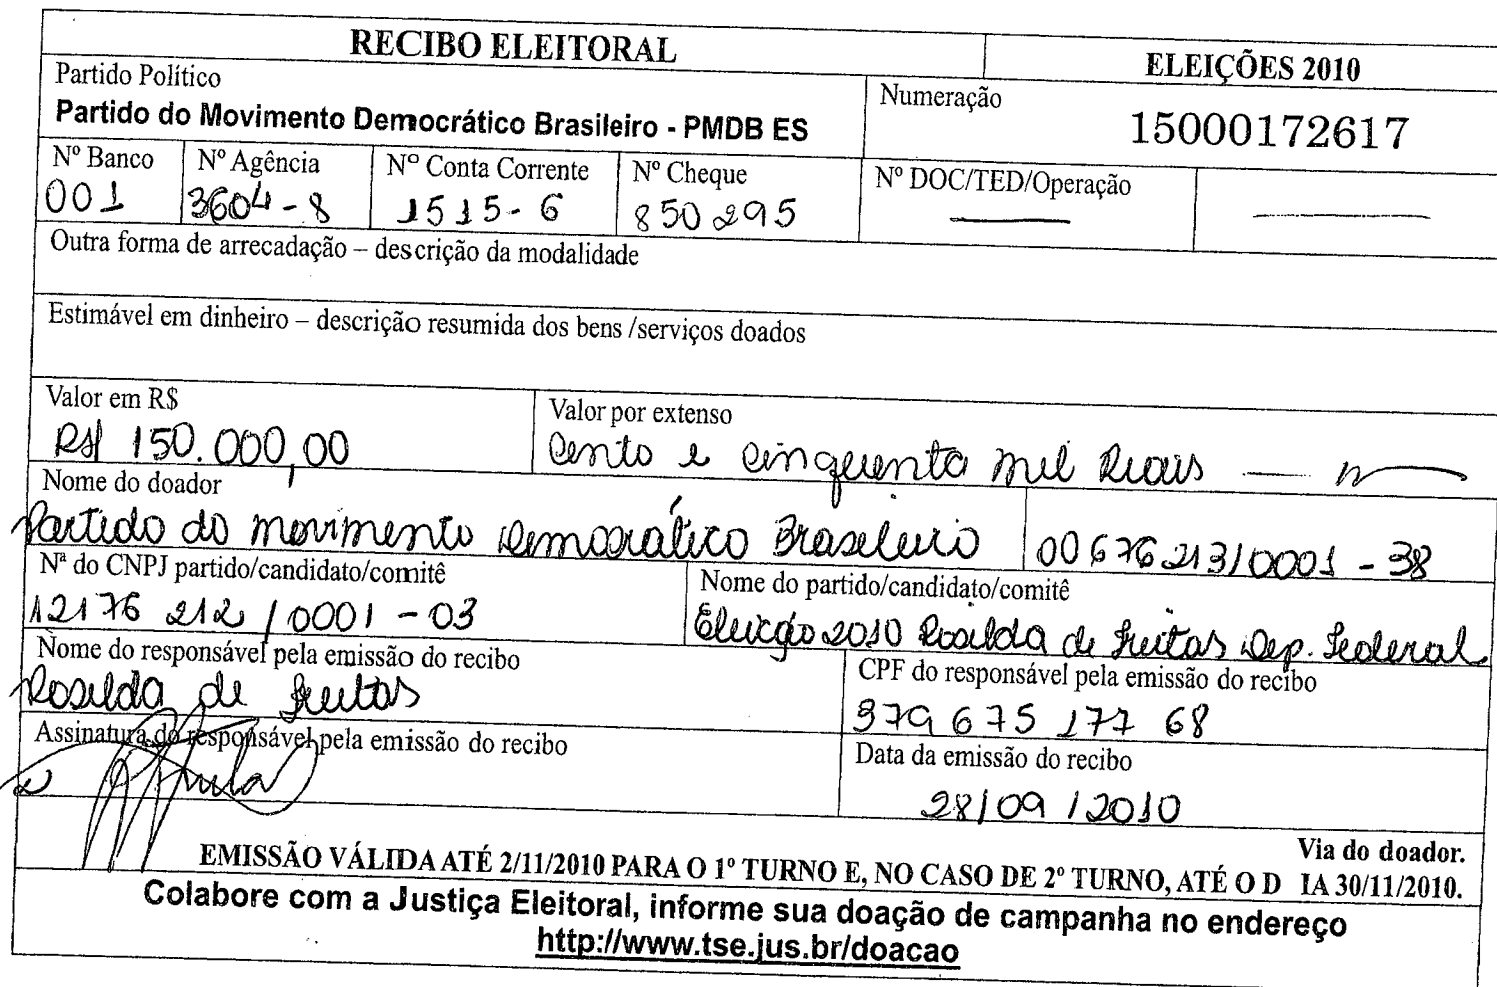 RECIBO ELEITORAL
ELEIÇÕES 2010
Partido Político
Partido do Movimento Democrático Brasileiro - PMDB ES
Numeração
15000172617
Nº Banco
001
Nº Agência
3604-8
Nº Conta Corrente
1515-6
Nº Cheque
850295
Nº DOC/TED/Operação
Outra forma de arrecadação – descrição da modalidade
Estimável em dinheiro – descrição resumida dos bens /serviços doados
Valor em R$
R$ 150.000,00
Valor por extenso
Cento e cinquenta mil Reais
Nome do doador
Partido do movimento Democrático Brasileiro
00676213/0001-38
Nª do CNPJ partido/candidato/comitê
12176212/0001-03
Nome do partido/candidato/comitê
Eleição 2010 Rosilda de Freitas Dep. Federal
Nome do responsável pela emissão do recibo
Rosilda de Freitas
CPF do responsável pela emissão do recibo
979 675 177 68
Assinatura do responsável pela emissão do recibo
Data da emissão do recibo
28/09/2010
Via do doador.
EMISSÃO VÁLIDA ATÉ 2/11/2010 PARA O 1º TURNO E, NO CASO DE 2º TURNO, ATÉ O D IA 30/11/2010.
Colabore com a Justiça Eleitoral, informe sua doação de campanha no endereço
http://www.tse.jus.br/doacao